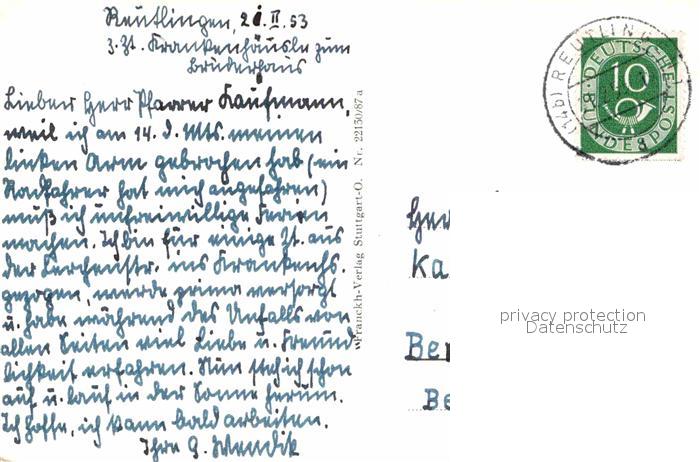 Reutlingen, 21. II. 53
z. Zt. Krankenhäusle zum
Bruderhaus
Lieber Herr Pfarrer Kaufmann,
weil ich am 14. d. Mts. meinen
linken Arm gebrochen hab (ein
Radfahrer hat mich angefahren)
muß ich unfreiwillige Ferien
machen. Ich bin für einige Zt. aus
der Lerchenstr. ins Krankenhs.
gezogen, werde prima versorgt
u. habe während des Unfalls von
allen Seiten viel Liebe u. Freund
lichkeit erfahren. Nun steh ich schon
auf u. lauf in der Sonne herum.
Ich hoffe, ich kann bald arbeiten.
Ihre G. Wendik
Franckh-Verlag Stuttgart-O. Nr. 22150/87 a
(14b) REUTLINGEN
DEUTSCHE
10
BUNDESPOST
Her
Ka
Be
Be
privacy protection
Datenschutz